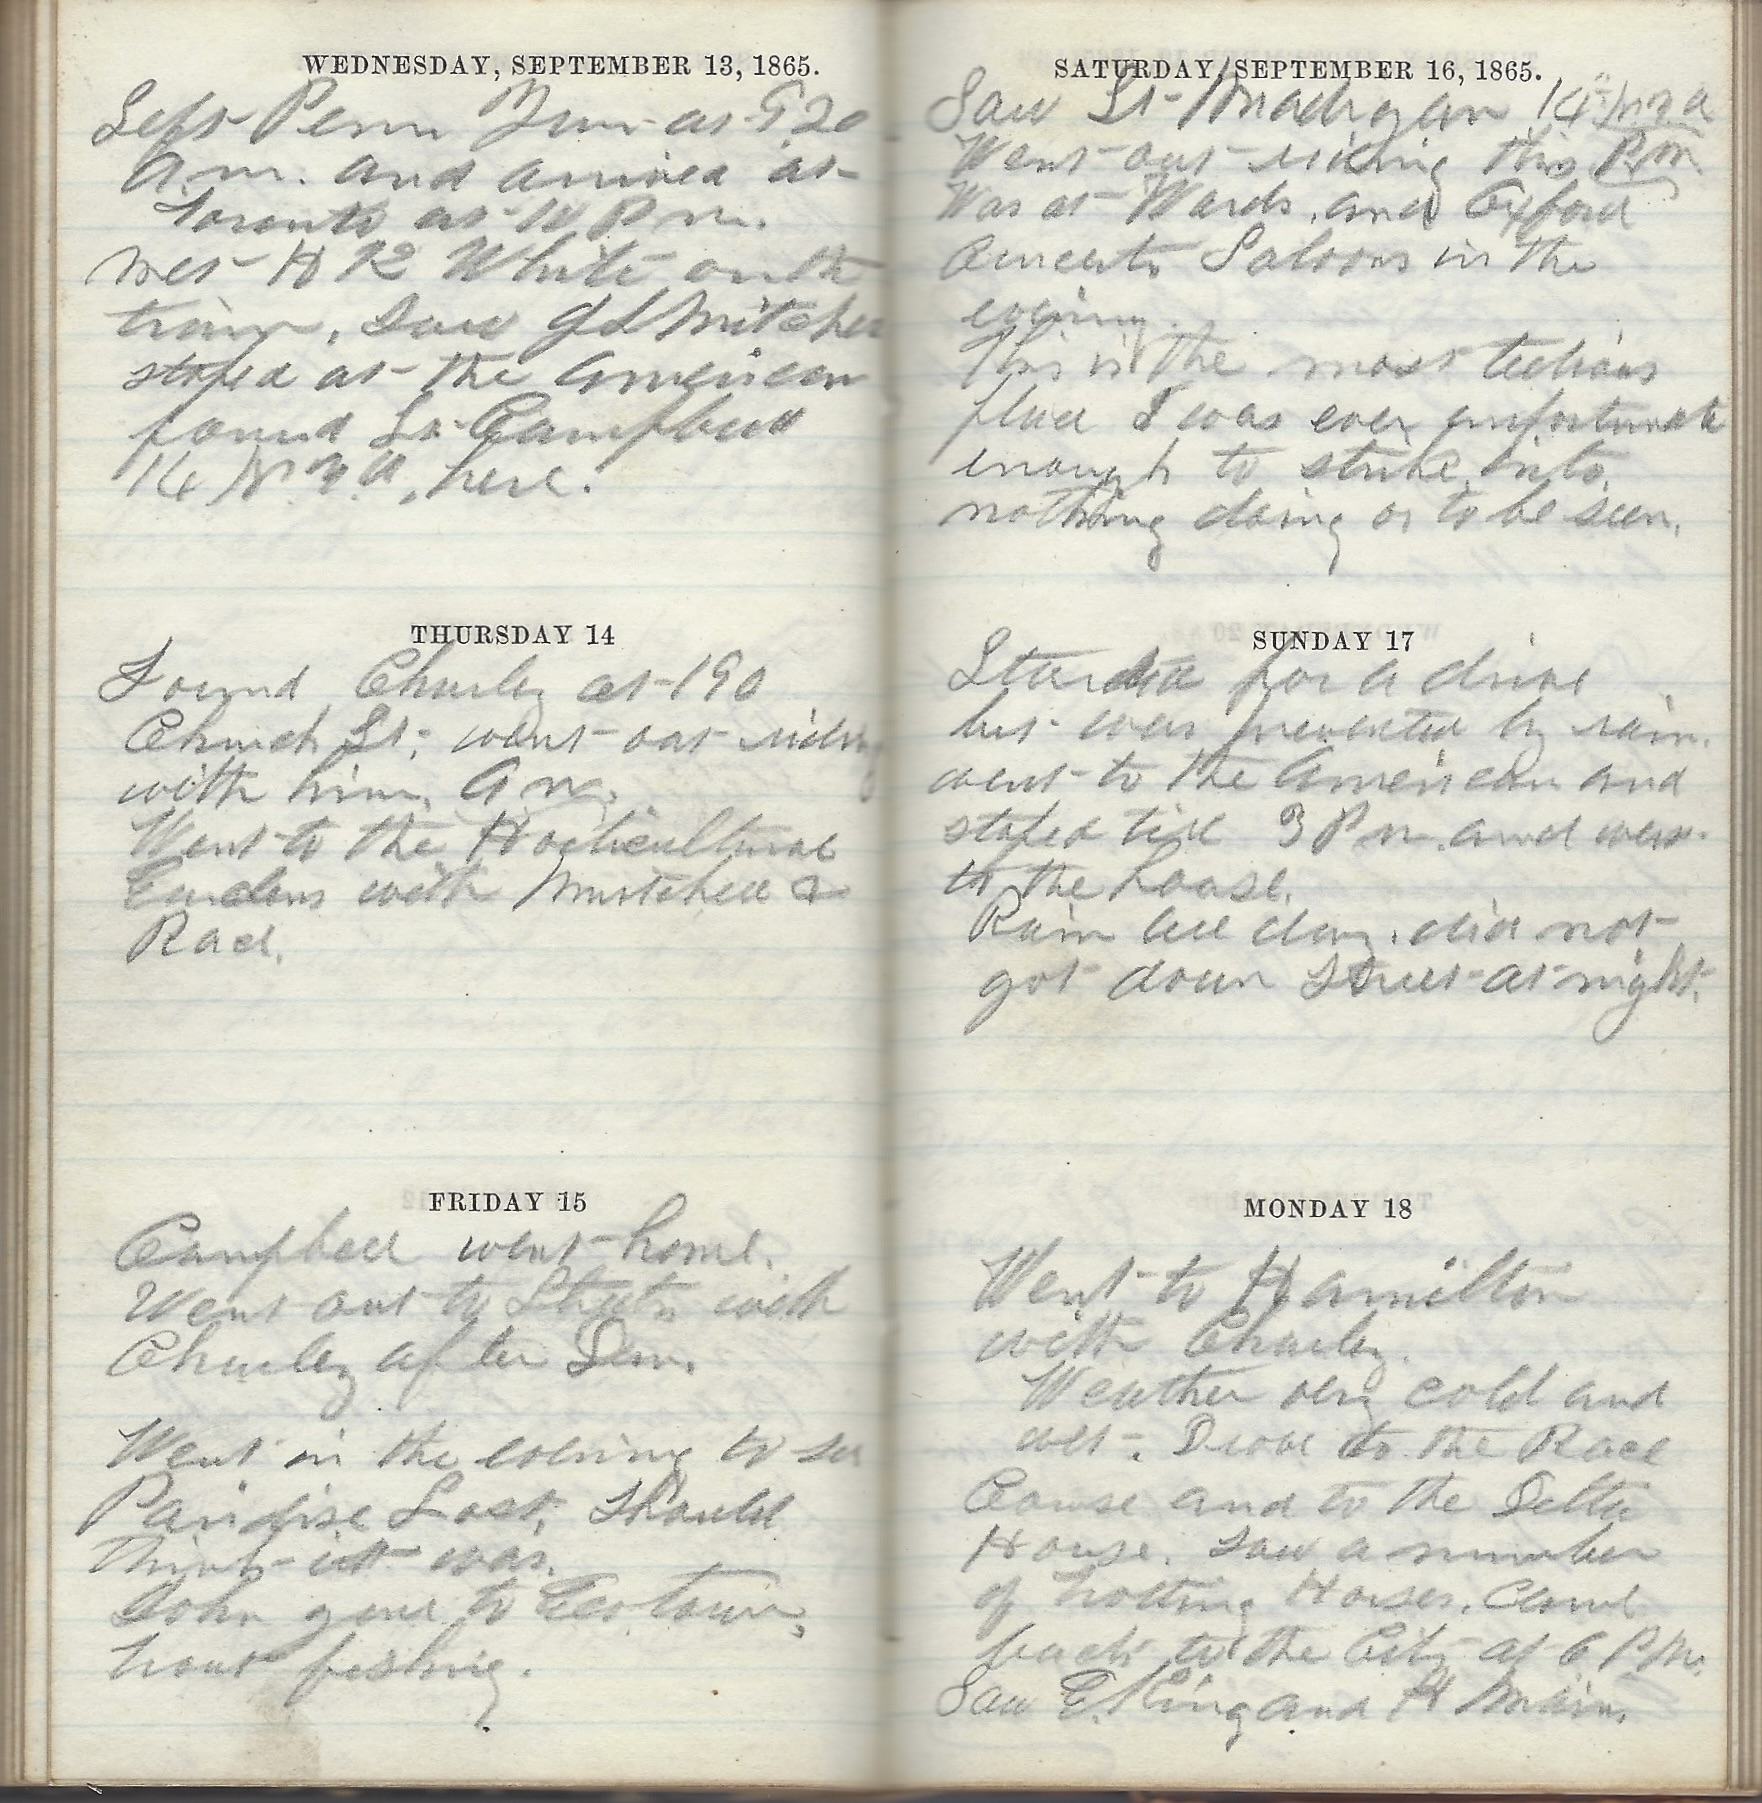 WEDNESDAY, SEPTEMBER 13, 1865.
Left Penn Yan at 9 20
A.m. and arrived at
Toronto at 10 P m.
met H R White on th
train, Saw G L Mitchel
stoped at the American
found Lt Campbell
14 N.Y.A. here.
THURSDAY 14
Found Charley at 190
Church St; went out riding
with him. A m.
Went to the Horticultural
Gardens with Mitchell &
Race.
FRIDAY 15
Campbell went home.
Went out to Streets with
Charley after Dem.
Went in the evening to see
Paridise Lost, Should
think it was.
John gone to town,
trout fishing.
SATURDAY, SEPTEMBER 16, 1865.
Saw Lt Madigan 14th N Y A
Went out riding this P m
Was at Wards, and Oxford
Concerts Saloons in the
evening.
This is the most tedious
place I was ever unfortunate
enough to strike into.
nothing doing or to be seen.
SUNDAY 17
Started for a drive
but was prevented by rain.
went to the American and
stoped till 3 P m. and went
to the house.
Rain all day. did not
got down Street at night.
MONDAY 18
Went to Hamilton
with Charley.
Weather very cold and
wet. Drove to the Race
Course and to the Delta
House. Saw a number
of trotting Horses. Came
back to the City at 6 P M.
Saw E. King and H Main.